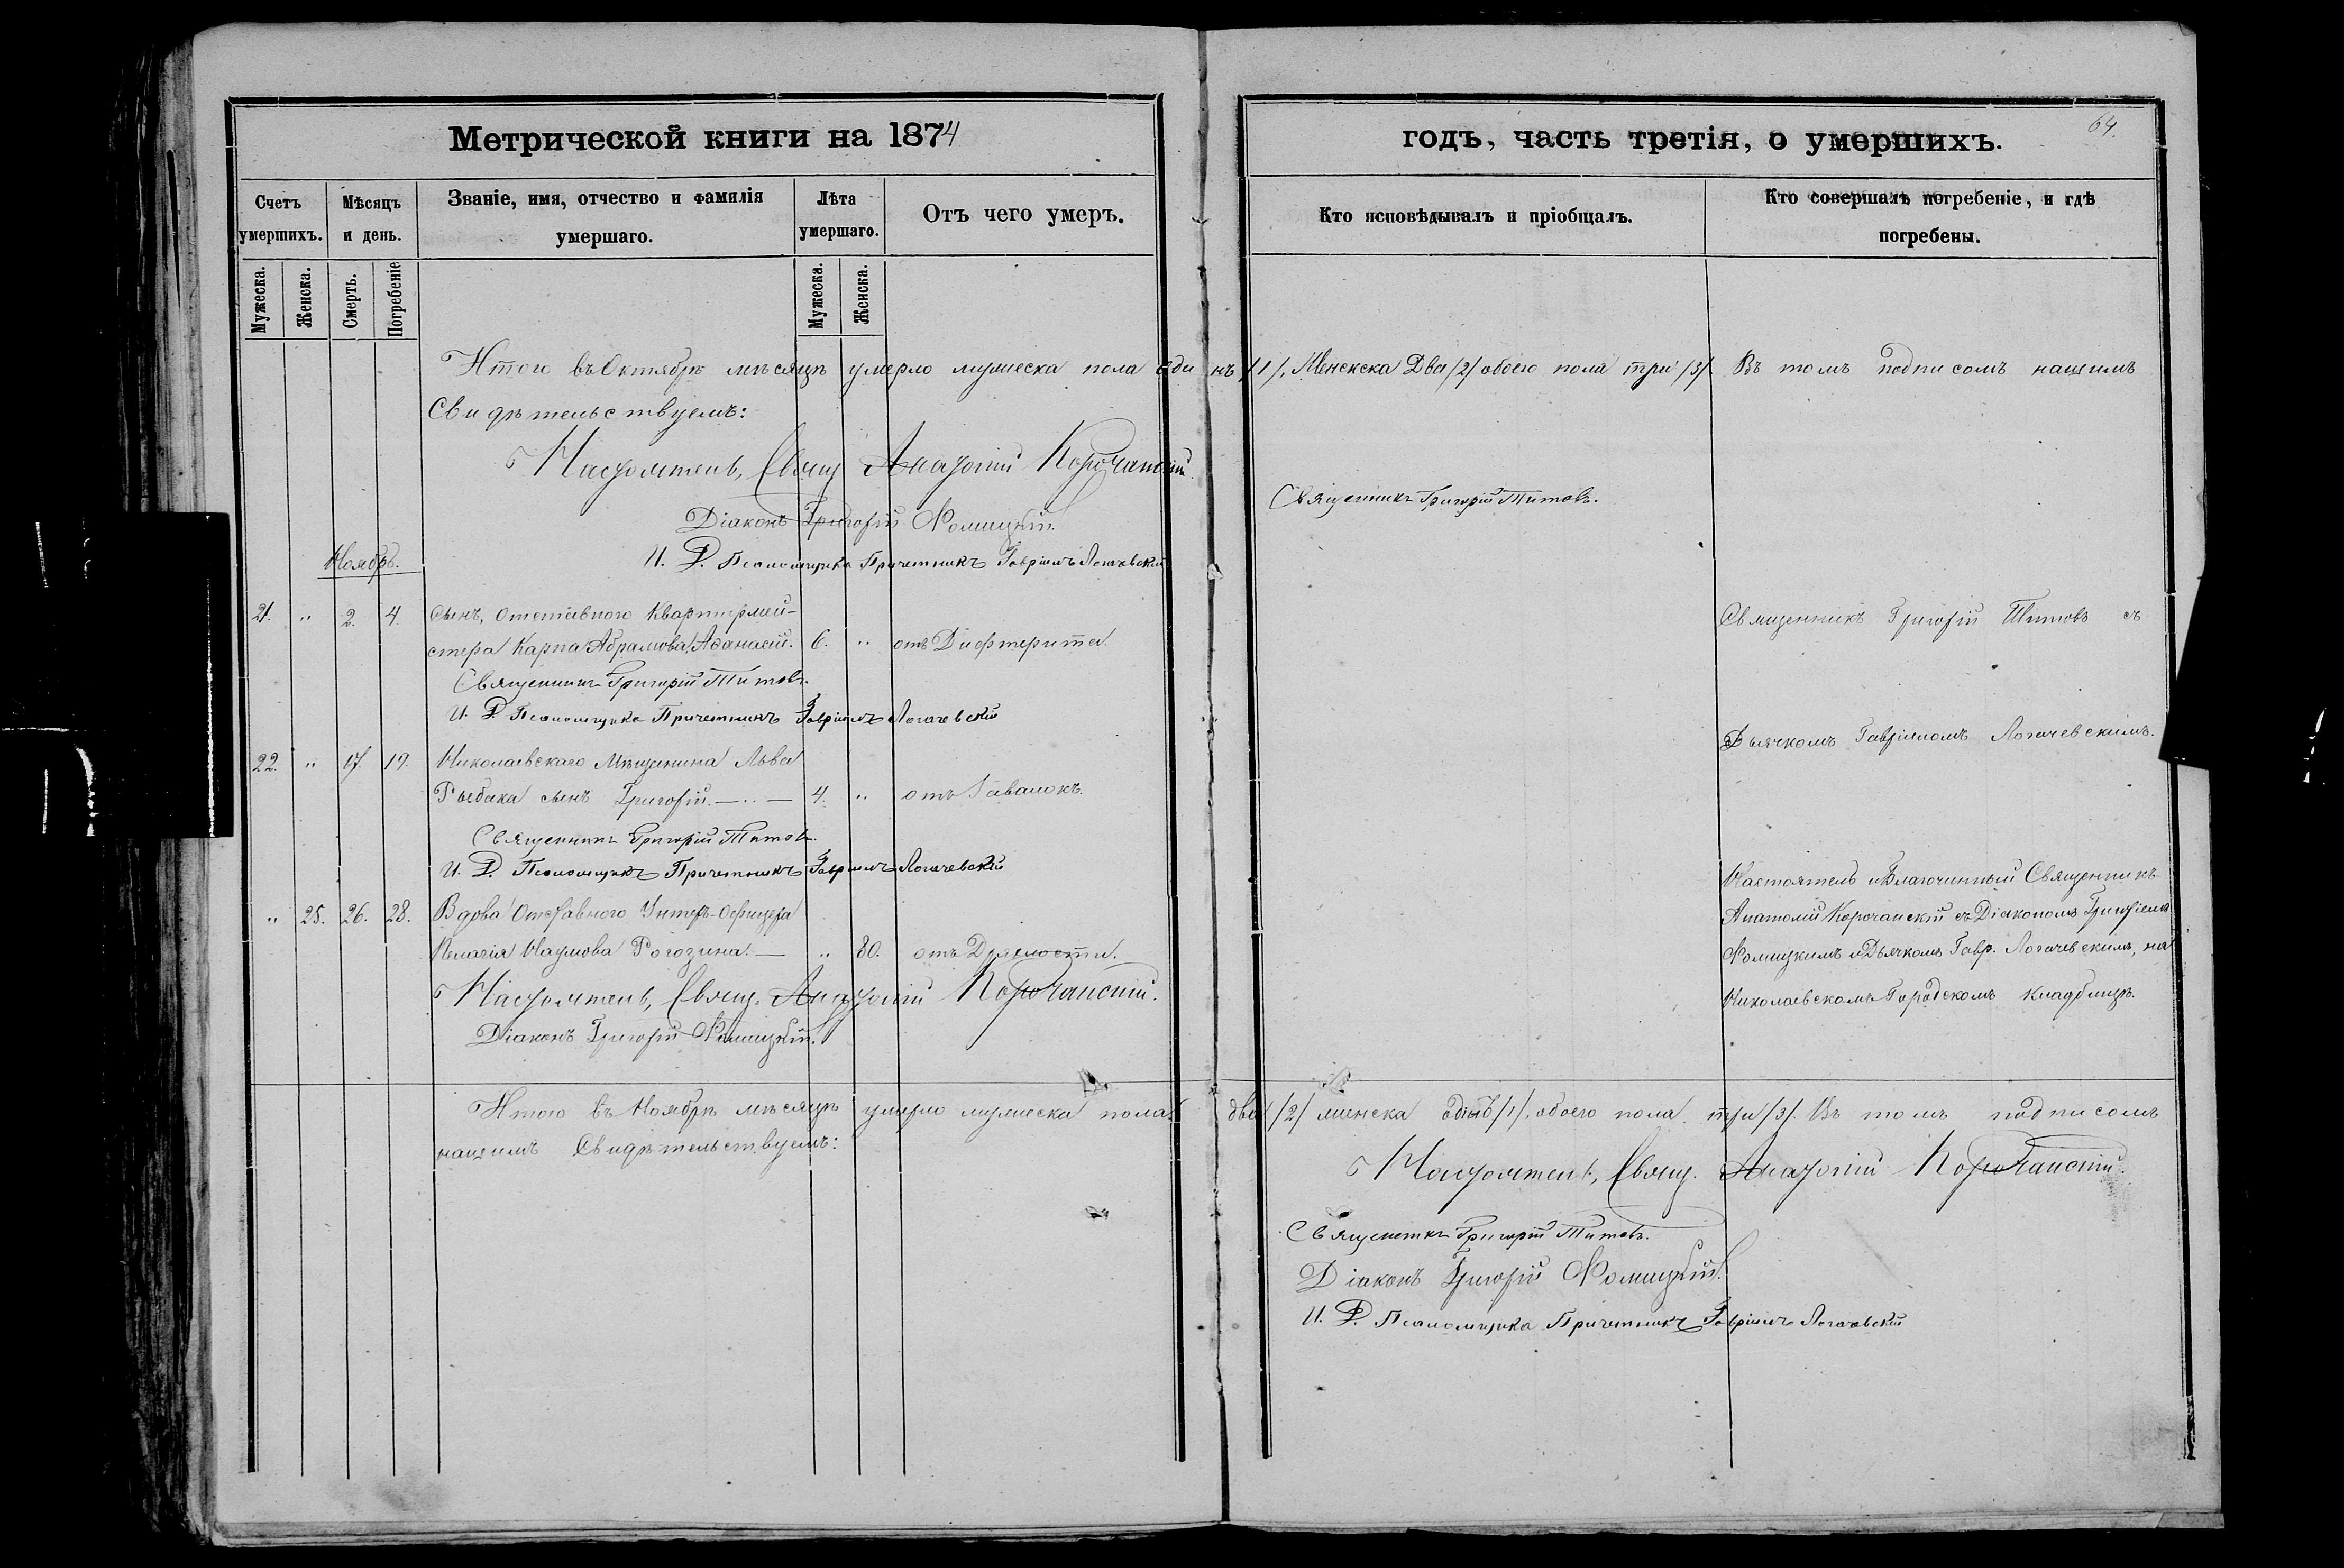 Метрической книги на 1874
годъ, часть третія, о умершихъ.
64.
Счетъ умершихъ.
Мѣсяцъ и день.
Званіе, имя, отчество и фамилія умершаго.
Лѣта умершаго.
Отъ чего умеръ.
Кто исповѣдывалъ и пріобщалъ.
Кто совершалъ погребеніе, и гдѣ погребены.
Мужеска.
Женска.
Смерть.
Погребеніе
Мужеска.
Женска.
Итого въ Октябрѣ мѣсяцѣ умерло мужеска пола одинъ /1/, Женскска Два /2/ обоего пола три /3/ Въ томъ подписомъ нашимъ
Свидѣтельствуемъ:
Настоятель, Свящ Анатолій Корочанскій.
Священникъ Григорій Титовъ.
Діаконъ Григорій Ѳомицкій.
И. Д. Псаломщика Причетникъ Гавріилъ Логачевскій
Ноябрь.
21. " 2. 4. Сынъ, Отставного Квартирмей-
стера Карпа Абрамова, Аѳанасій. 6. " отъ Дифтерита.
Священникъ Григорій Титовъ
Священникъ Григорій Титовъ съ
И. Д. Псаломщика Причетникъ Гавріилъ Логачевскій
Дьячкомъ Гавріиломъ Логачевскимъ.
22. " 17. 19. Николаевскаго Мѣщанина Льва
Рыбака сынъ Григорій. 4. " отъ Завалокъ.
Священникъ Григорій Титовъ.
И. Д. Псаломщика Причетникъ Гавріилъ Логачевскій
" 25. 26. 28. Вдова Отставного Унтеръ-Офицера
Пелагія Наумова Рогозина. " 80. отъ Дряхлости.
Настоятель и Благочинный Священникъ
Анатолій Корочанскій съ Діакономъ Григоріемъ
Ѳомицкимъ и Дьячкомъ Гавр. Логачевскимъ, на
Николаевскомъ Городскомъ кладбищѣ.
Настоятель, Свящ. Анатолій Корочанскій.
Діаконъ Григорій Ѳомицкій.
Итого въ Ноябрѣ мѣсяцѣ умерло мужеска пола два /2/ женска одна /1/, обоего пола три /3/. Въ томъ подписомъ
нашимъ Свидѣтельствуемъ:
Настоятель, Свящ. Анатолій Корочанскій.
Священникъ Григорій Титовъ.
Діаконъ Григорій Ѳомицкій.
И. Д. Псаломщика Причетникъ Гавріилъ Логачевскій